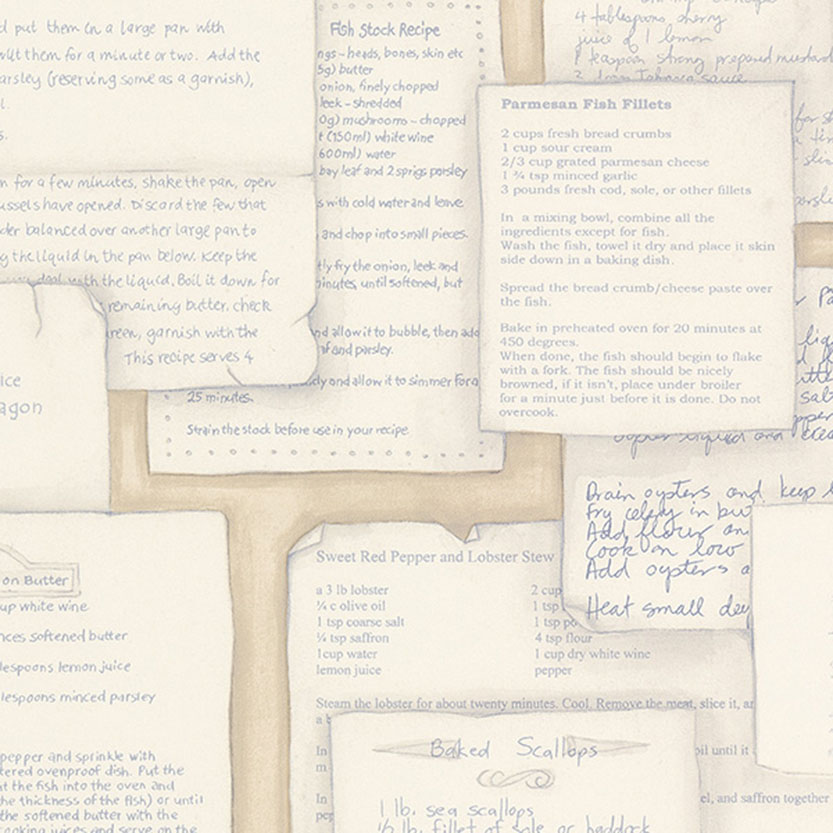 put them in a large pan with
wilt them for a minute or two. Add the
arsley (reserving some as a garnish),
n for a few minutes, shake the pan, open
ussels have opened. Discard the few that
der balanced over another large pan to
g the liquid in the pan below. Keep the
with the liquid. Boil it down for
remaining butter. check
reen, garnish with the
This recipe serves 4
Fish Stock Recipe
ngs - heads, bones, skin etc
5g) butter
onion, finely chopped
leek - shredded
0g) mushrooms - chopped
t (150ml) white wine
600ml) water
bay leaf and 2 sprigs parsley
s with cold water and leave
and chop into small pieces.
tly fry the onion, leek and
minutes, until softened, but
nd allow it to bubble, then add
f and parsley.
and allow it to simmer for a
25 minutes.
Strain the stock before use in your recipe.
4 tablespoons sherry
juice of 1 lemon
1 teaspoon strong prepared mustard
Parmesan Fish Fillets
2 cups fresh bread crumbs
1 cup sour cream
2/3 cup grated parmesan cheese
1 ¾ tsp minced garlic
3 pounds fresh cod, sole, or other fillets
In a mixing bowl, combine all the
ingredients except for fish.
Wash the fish, towel it dry and place it skin
side down in a baking dish.
Spread the bread crumb/cheese paste over
the fish.
Bake in preheated oven for 20 minutes at
450 degrees.
When done, the fish should begin to flake
with a fork. The fish should be nicely
browned, if it isn't, place under broiler
for a minute just before it is done. Do not
overcook.
ice
agon
Drain oysters and keep
Fry celery in bu
Add flour an
Cook on low
Add oysters a
Heat small dee
on Butter
up white wine
nces softened butter
lespoons lemon juice
lespoons minced parsley
pepper and sprinkle with
tered ovenproof dish. Put the
at the fish into the oven and
he thickness of the fish) or until
the softened butter with the
cooking juices and serve on the
Sweet Red Pepper and Lobster Stew
a 3 lb lobster 2 cup
¼ c olive oil 1 tsp
1 tsp coarse salt 1 tsp po
¼ tsp saffron 4 tsp flour
1cup water 1 cup dry white wine
lemon juice pepper
Steam the lobster for about twenty minutes. Cool. Remove the meat, slice it, an
a b
In oil until it
m
In el, and saffron together
pep
Baked Scallops
1 lb. sea scallops
½ lb. fillet of sole or haddock